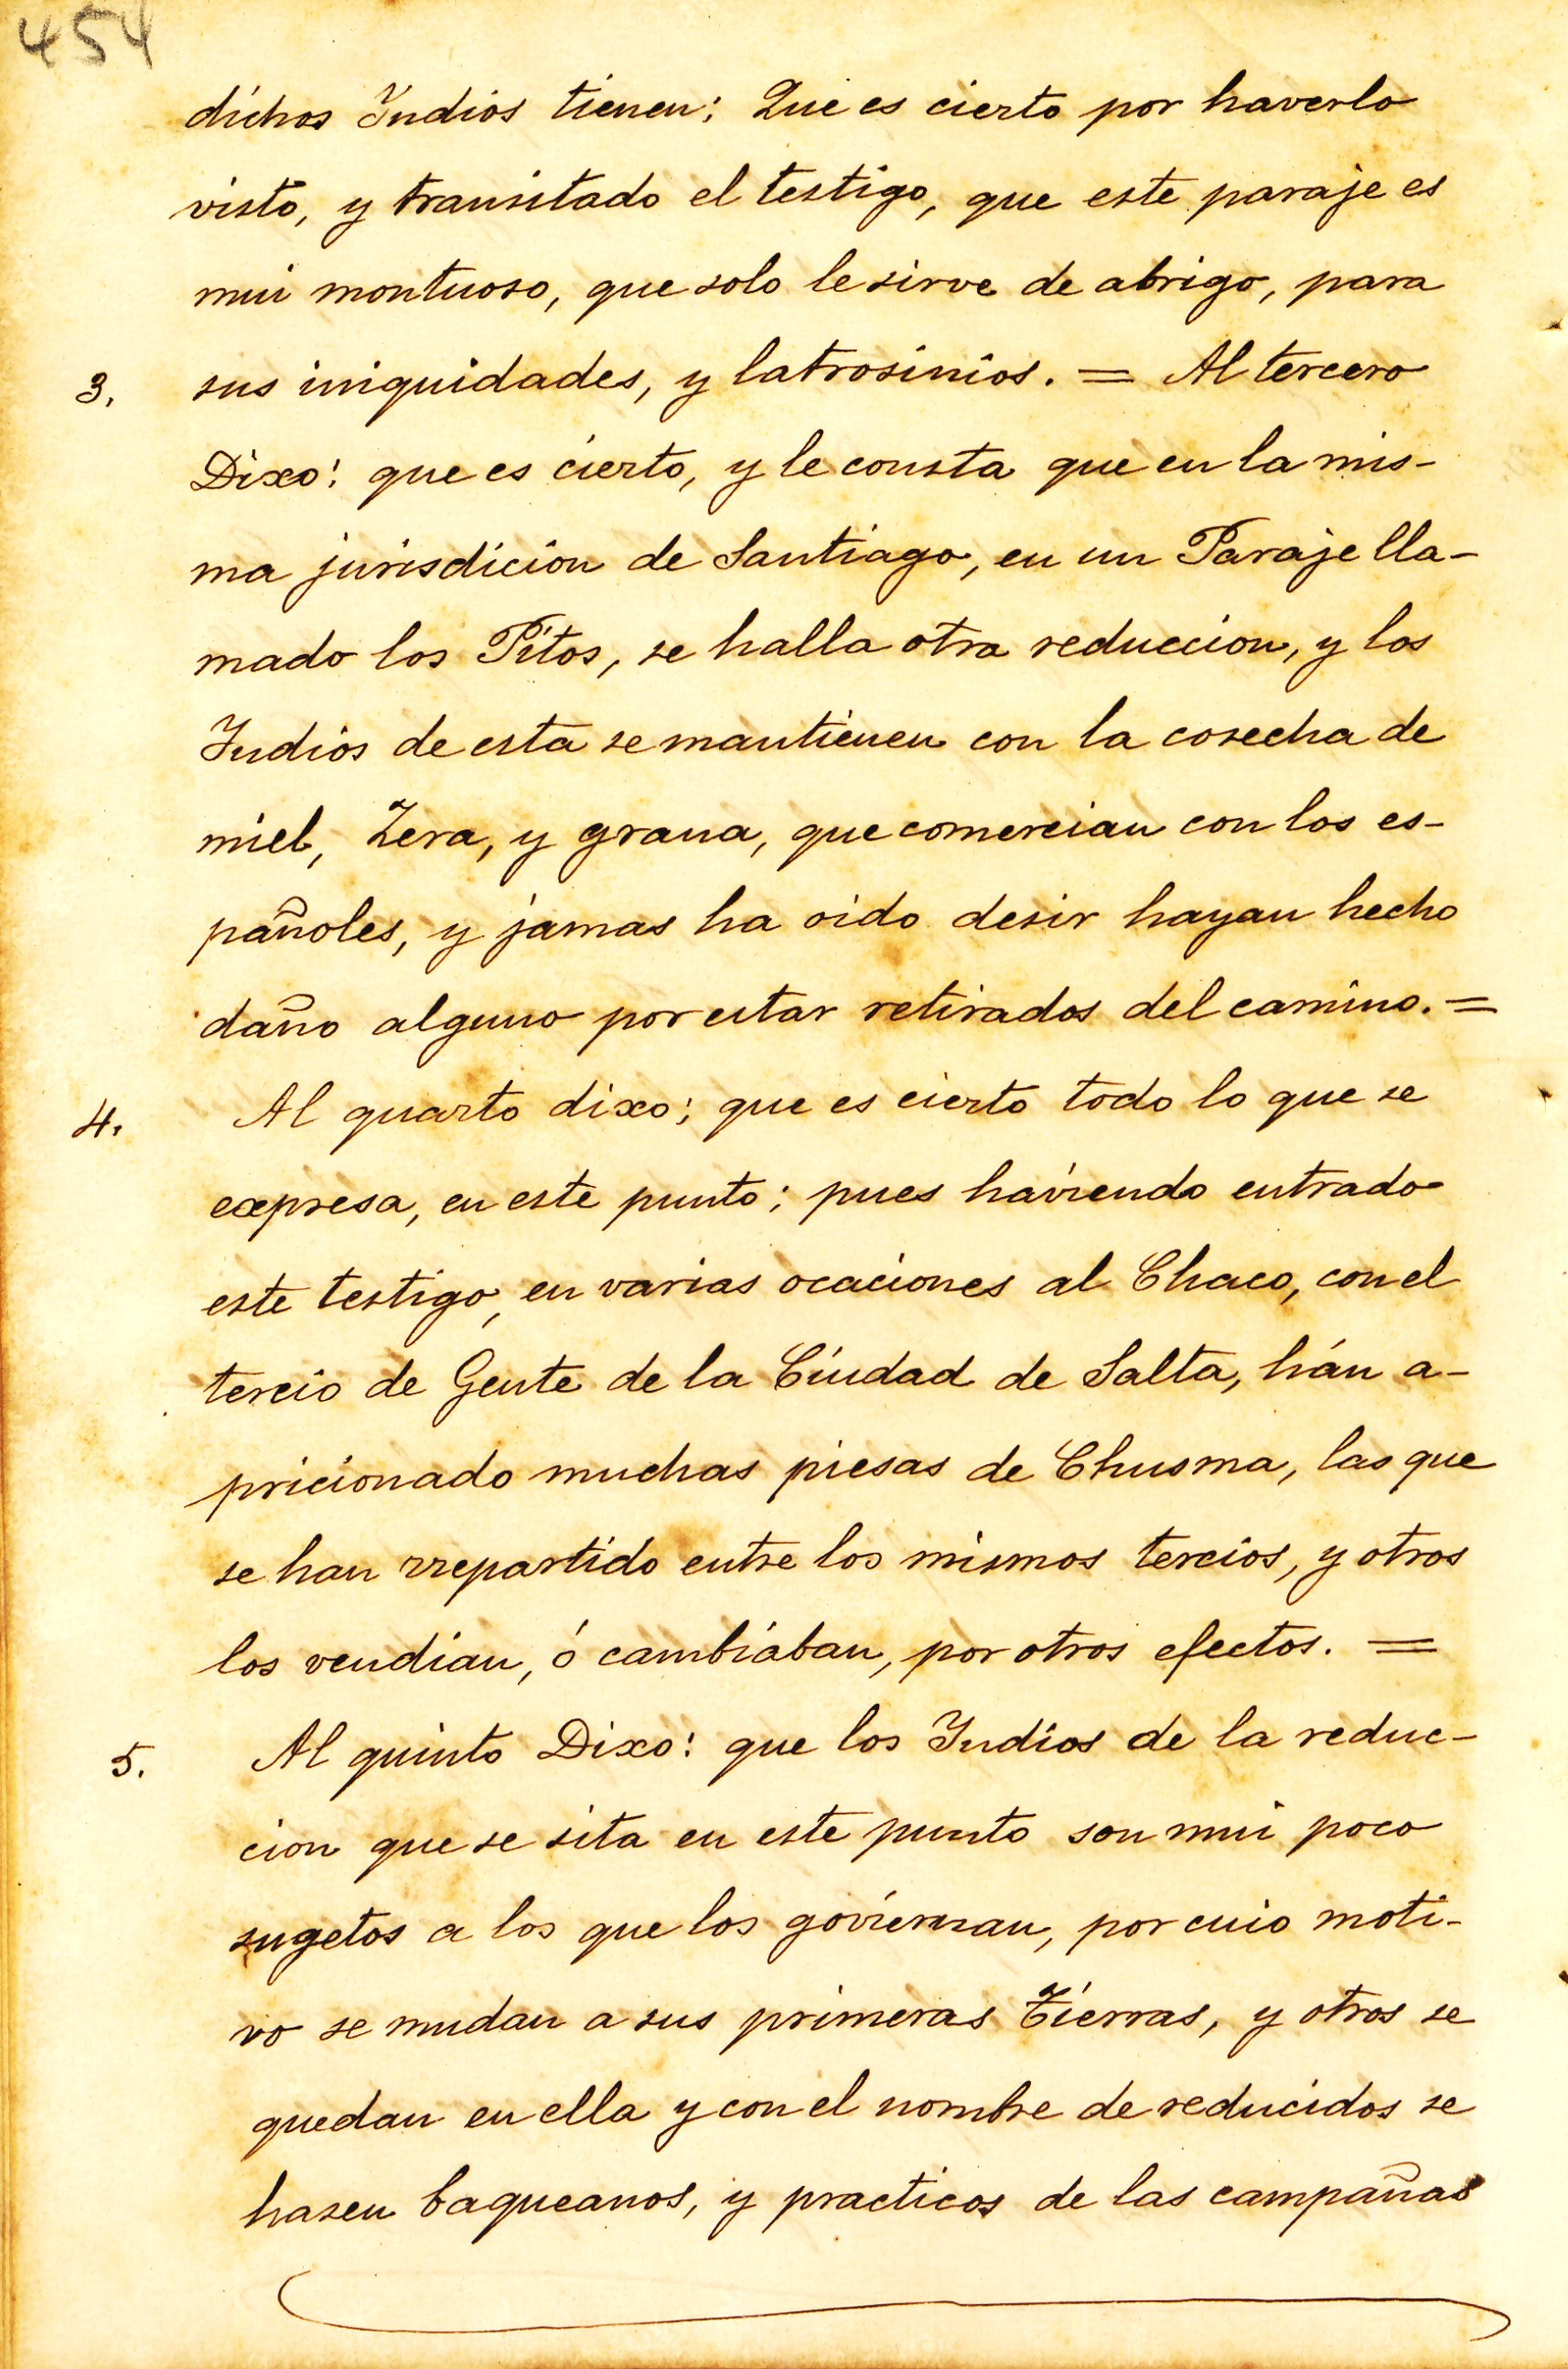 454
dichos Indios tienen; Que es cierto por haverlo
visto, y transitado el testigo, que este paraje es
mui montuoso, que solo le sirve de abrigo, para
3. sus iniquidades, y latrosinios. = Al tercero
Dixo: que es cierto, y le consta que en la mis-
ma jurisdicion de Santiago, en un Paraje lla-
mado los Pitos, se halla otra reduccion, y los
Indios de esta se mantienen con la cosecha de
miel, Zera, y grana, que comercian con los es-
pañoles, y jamas ha oido desir hayan hecho
daño alguno por estar retirados del camino. =
4. Al quarto dixo; que es cierto todo lo que se
expresa, en este punto; pues haviendo entrado
este testigo, en varias ocaciones al Chaco, con el
tercio de Gente de la Ciudad de Salta, hán a-
pricionado muchas piesas de Chusma, las que
se han rrepartido entre los mismos tercios, y otros
los vendian, ó cambiaban, por otros efectos. =
5. Al quinto Dixo: que los Indios de la reduc-
cion que se sita en este punto son mui poco
sugetos a los que los goviernan, por cuio moti-
vo se mudan a sus primeras Tierras, y otros se
quedan en ella y con el nombre de reducidos se
hasen baqueanos, y practicos de las campañas